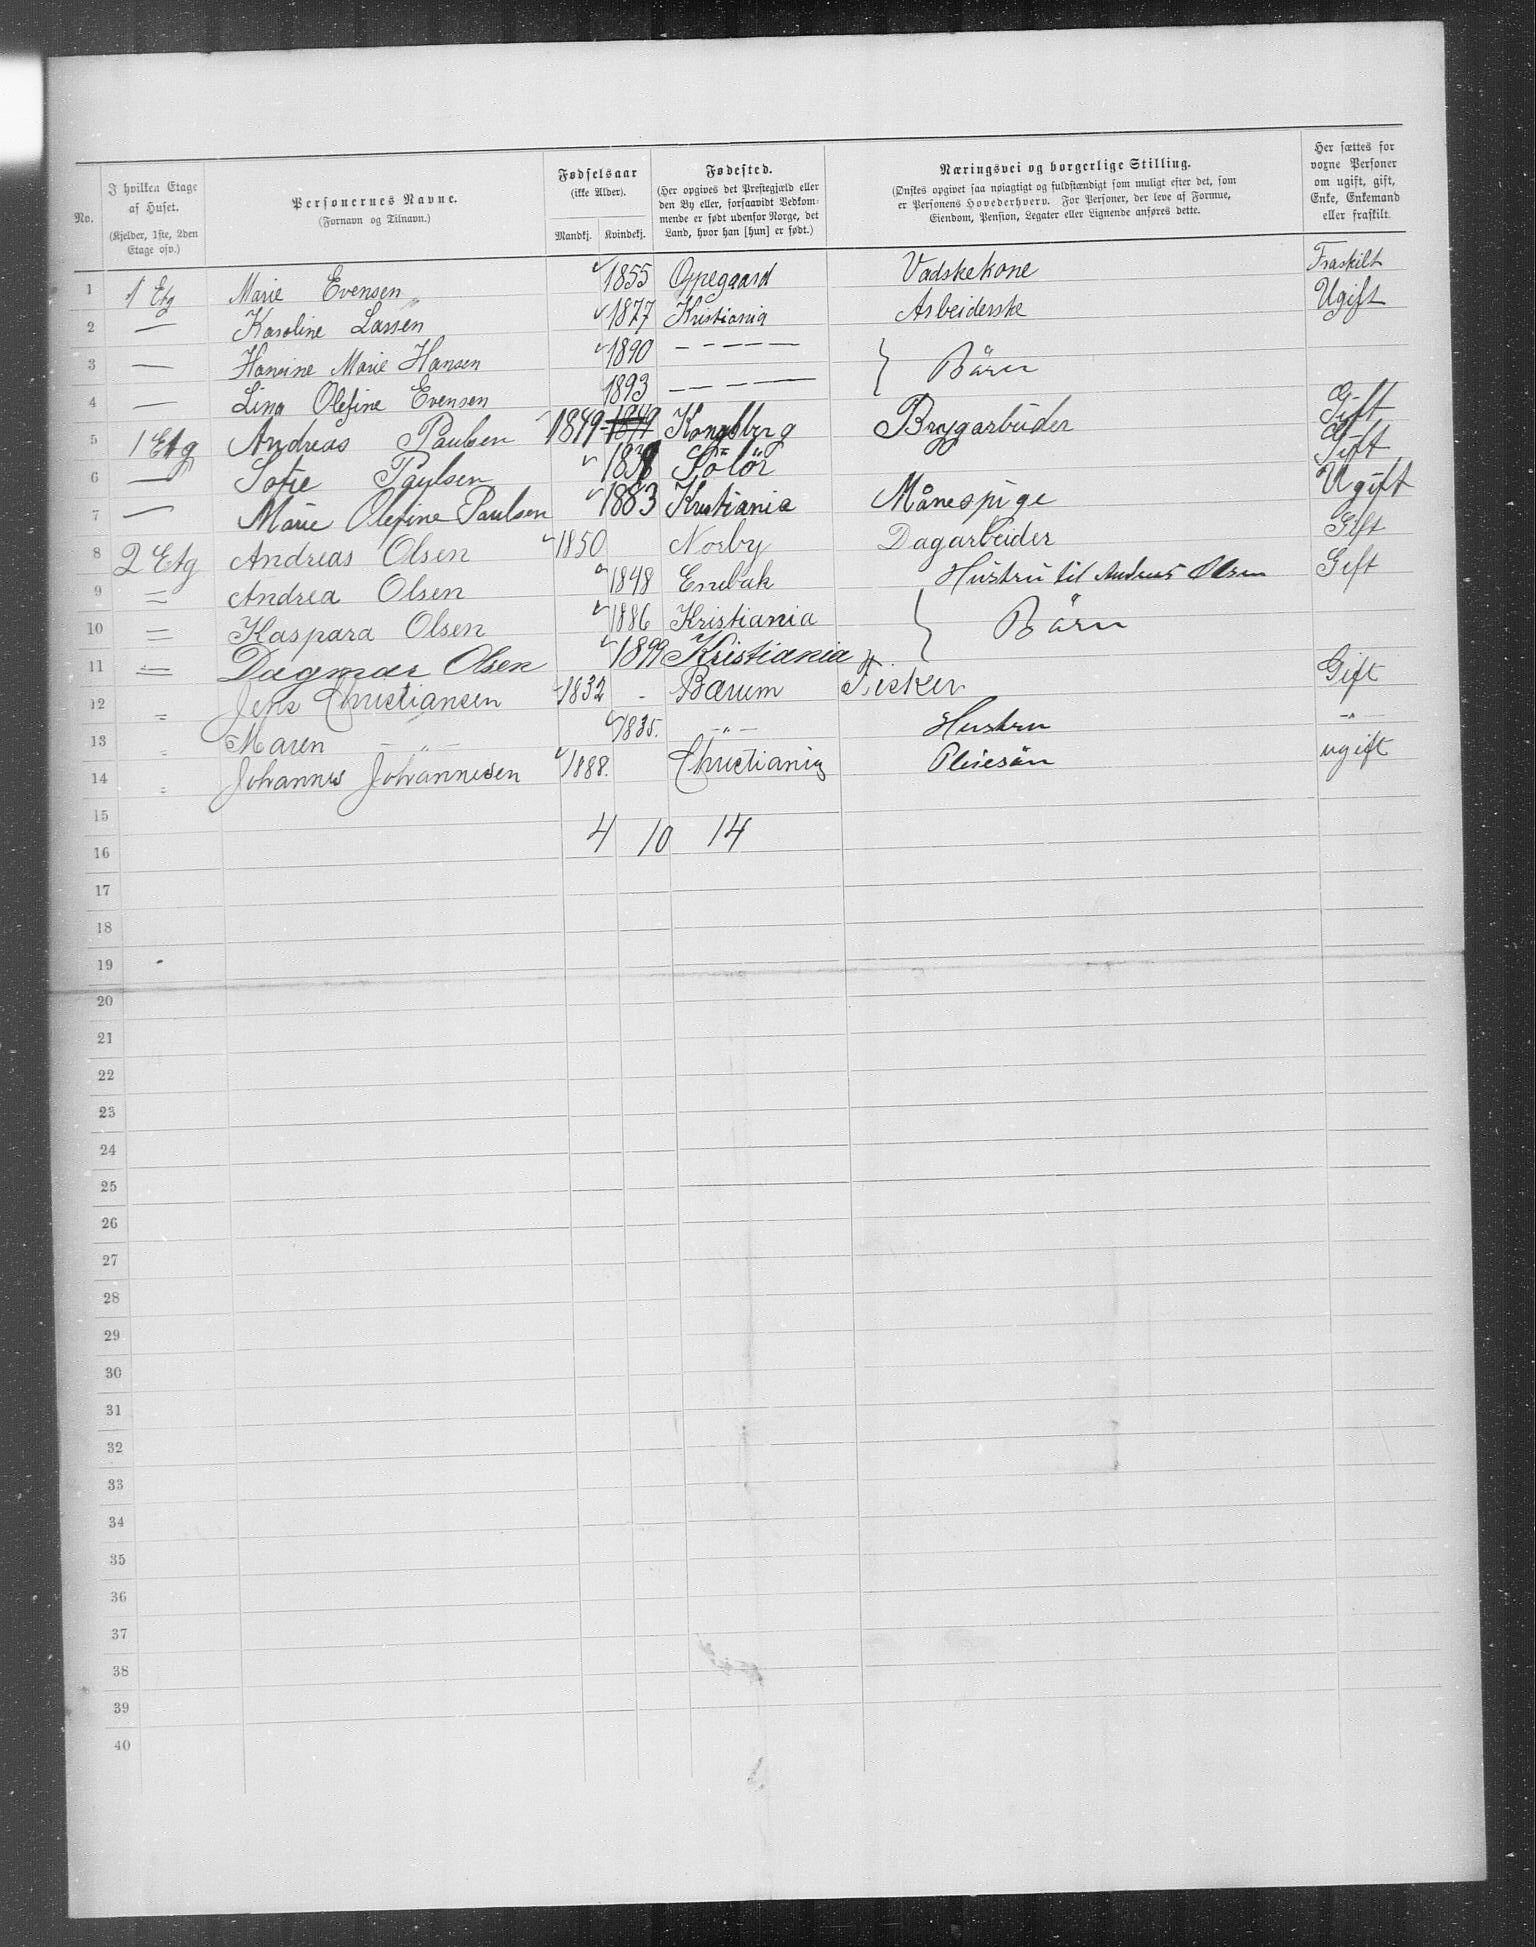 No.
I hvilken Etage af Huset.
(Kjelder, 1ste, 2den Etage osv.)
Personernes Navne.
(Fornavn og Tilnavn.)
Fødselsaar
(ikke Alder).
Mandkj. Kvindekj.
Fødested.
(Her opgives det Prestegjæld eller den By eller, forsaavidt Vedkommende er født udenfor Norge, det Land, hvor han [hun] er født.)
Næringsvei og borgerlige Stilling.
(Ønskes opgivet saa nøiagtigt og fuldstændigt som muligt efter det, som er Personens Hovederhverv. For Personer, der leve af Formue, Eiendom, Pension, Legater eller Lignende anføres dette.
Her sættes for voxne Personer om ugift, gift, Enke, Enkemand eller fraskilt.
1 1 Etg Marie Evensen 1855 Opegaard Vadskekone Fraskilt
2 — Karoline Lassen 1877 Kristiania Arbeiderske Ugift
3 — Hanine Marie Hansen 1890 — — — — } Bärn
4 — Lina Olefine Evensen 1893 — — — —
5 1 Etg Andreas Paulsen 1849 Kongsberg Brygarbüder Gift
6 — Sofie Paulsen 1838 Solör Gift
7 — Marie Olefine Paulsen 1883 Kristiania Månespige Ugift
8 2 Etg Andreas Olsen 1850 Norby Dagarbeider Gift
9 = Andrea Olsen 1848 Enebak Hustru til Andreas Olsen Gift
10 = Kaspara Olsen 1886 Kristiania } Bärn
11 = Dagmar Olsen 1899 Kristiania
12 = Jens Christiansen 1832 - Bærum Fisker Gift
13 = Maren — " — 1835. — " — Hustru — " —
14 = Johannes Johannesen 1888. Christiania Pleiesön ugift
15 4 10 14
16
17
18
19
20
21
22
23
24
25
26
27
28
29
30
31
32
33
34
35
36
37
38
39
40